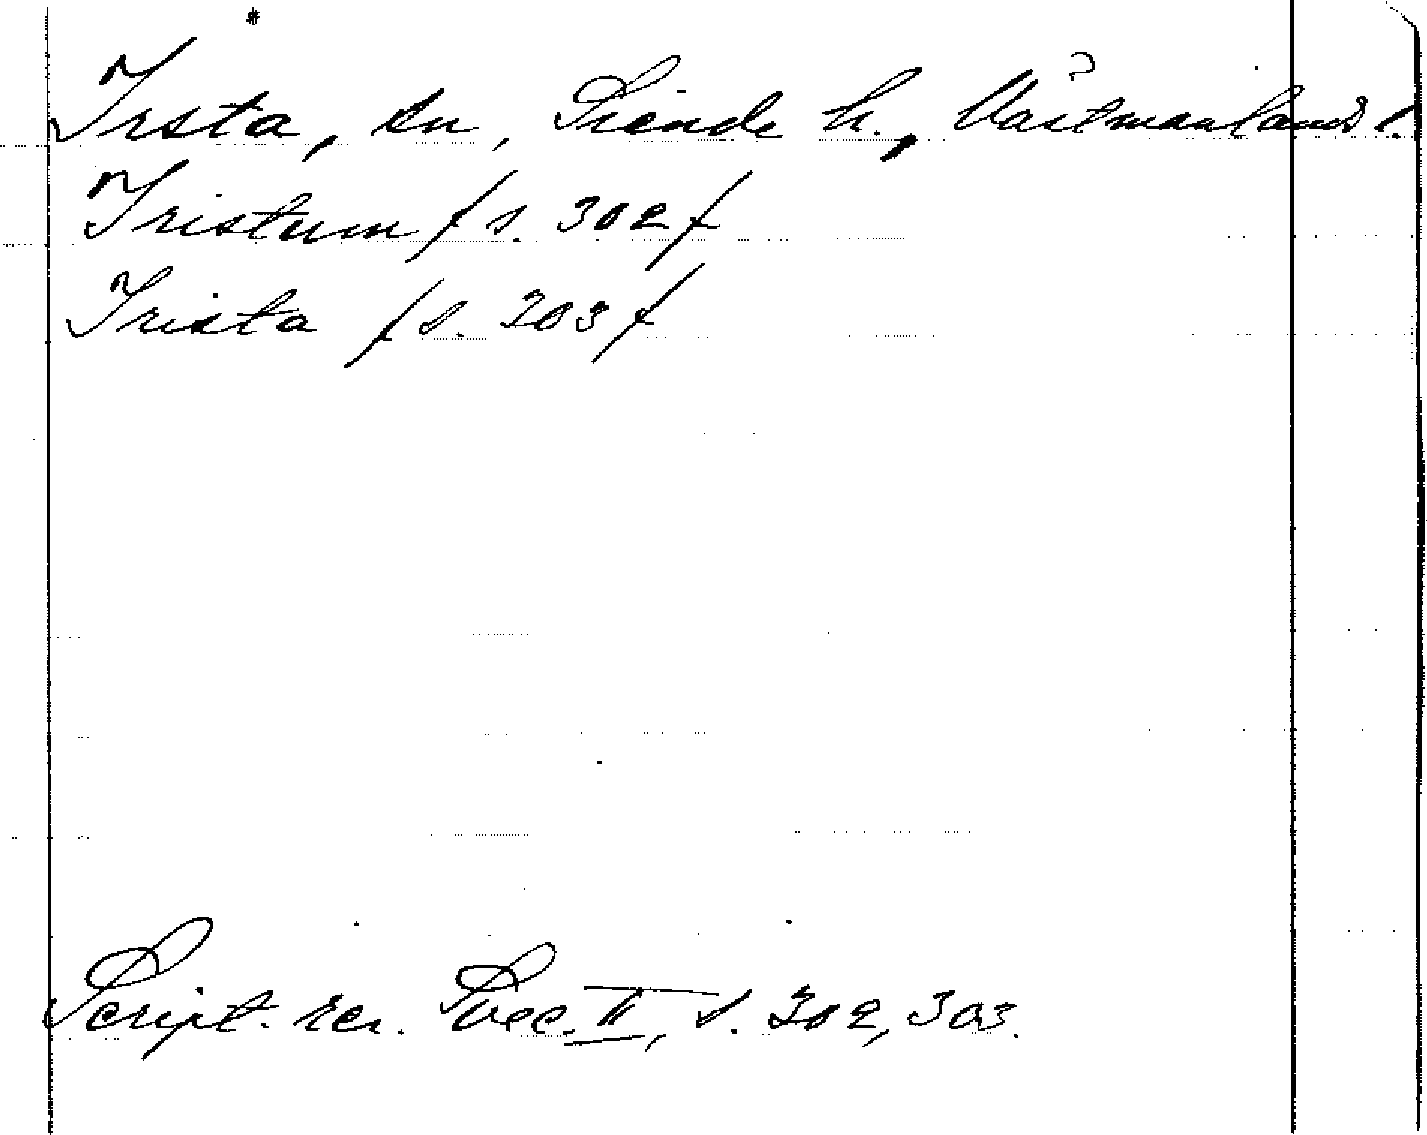 Irsta, sn, Siende h., Västmanlands l.
Iristum / s. 302 /
Irista / s. 303 /
Script. rer. Svec. II, s. 302, 303.